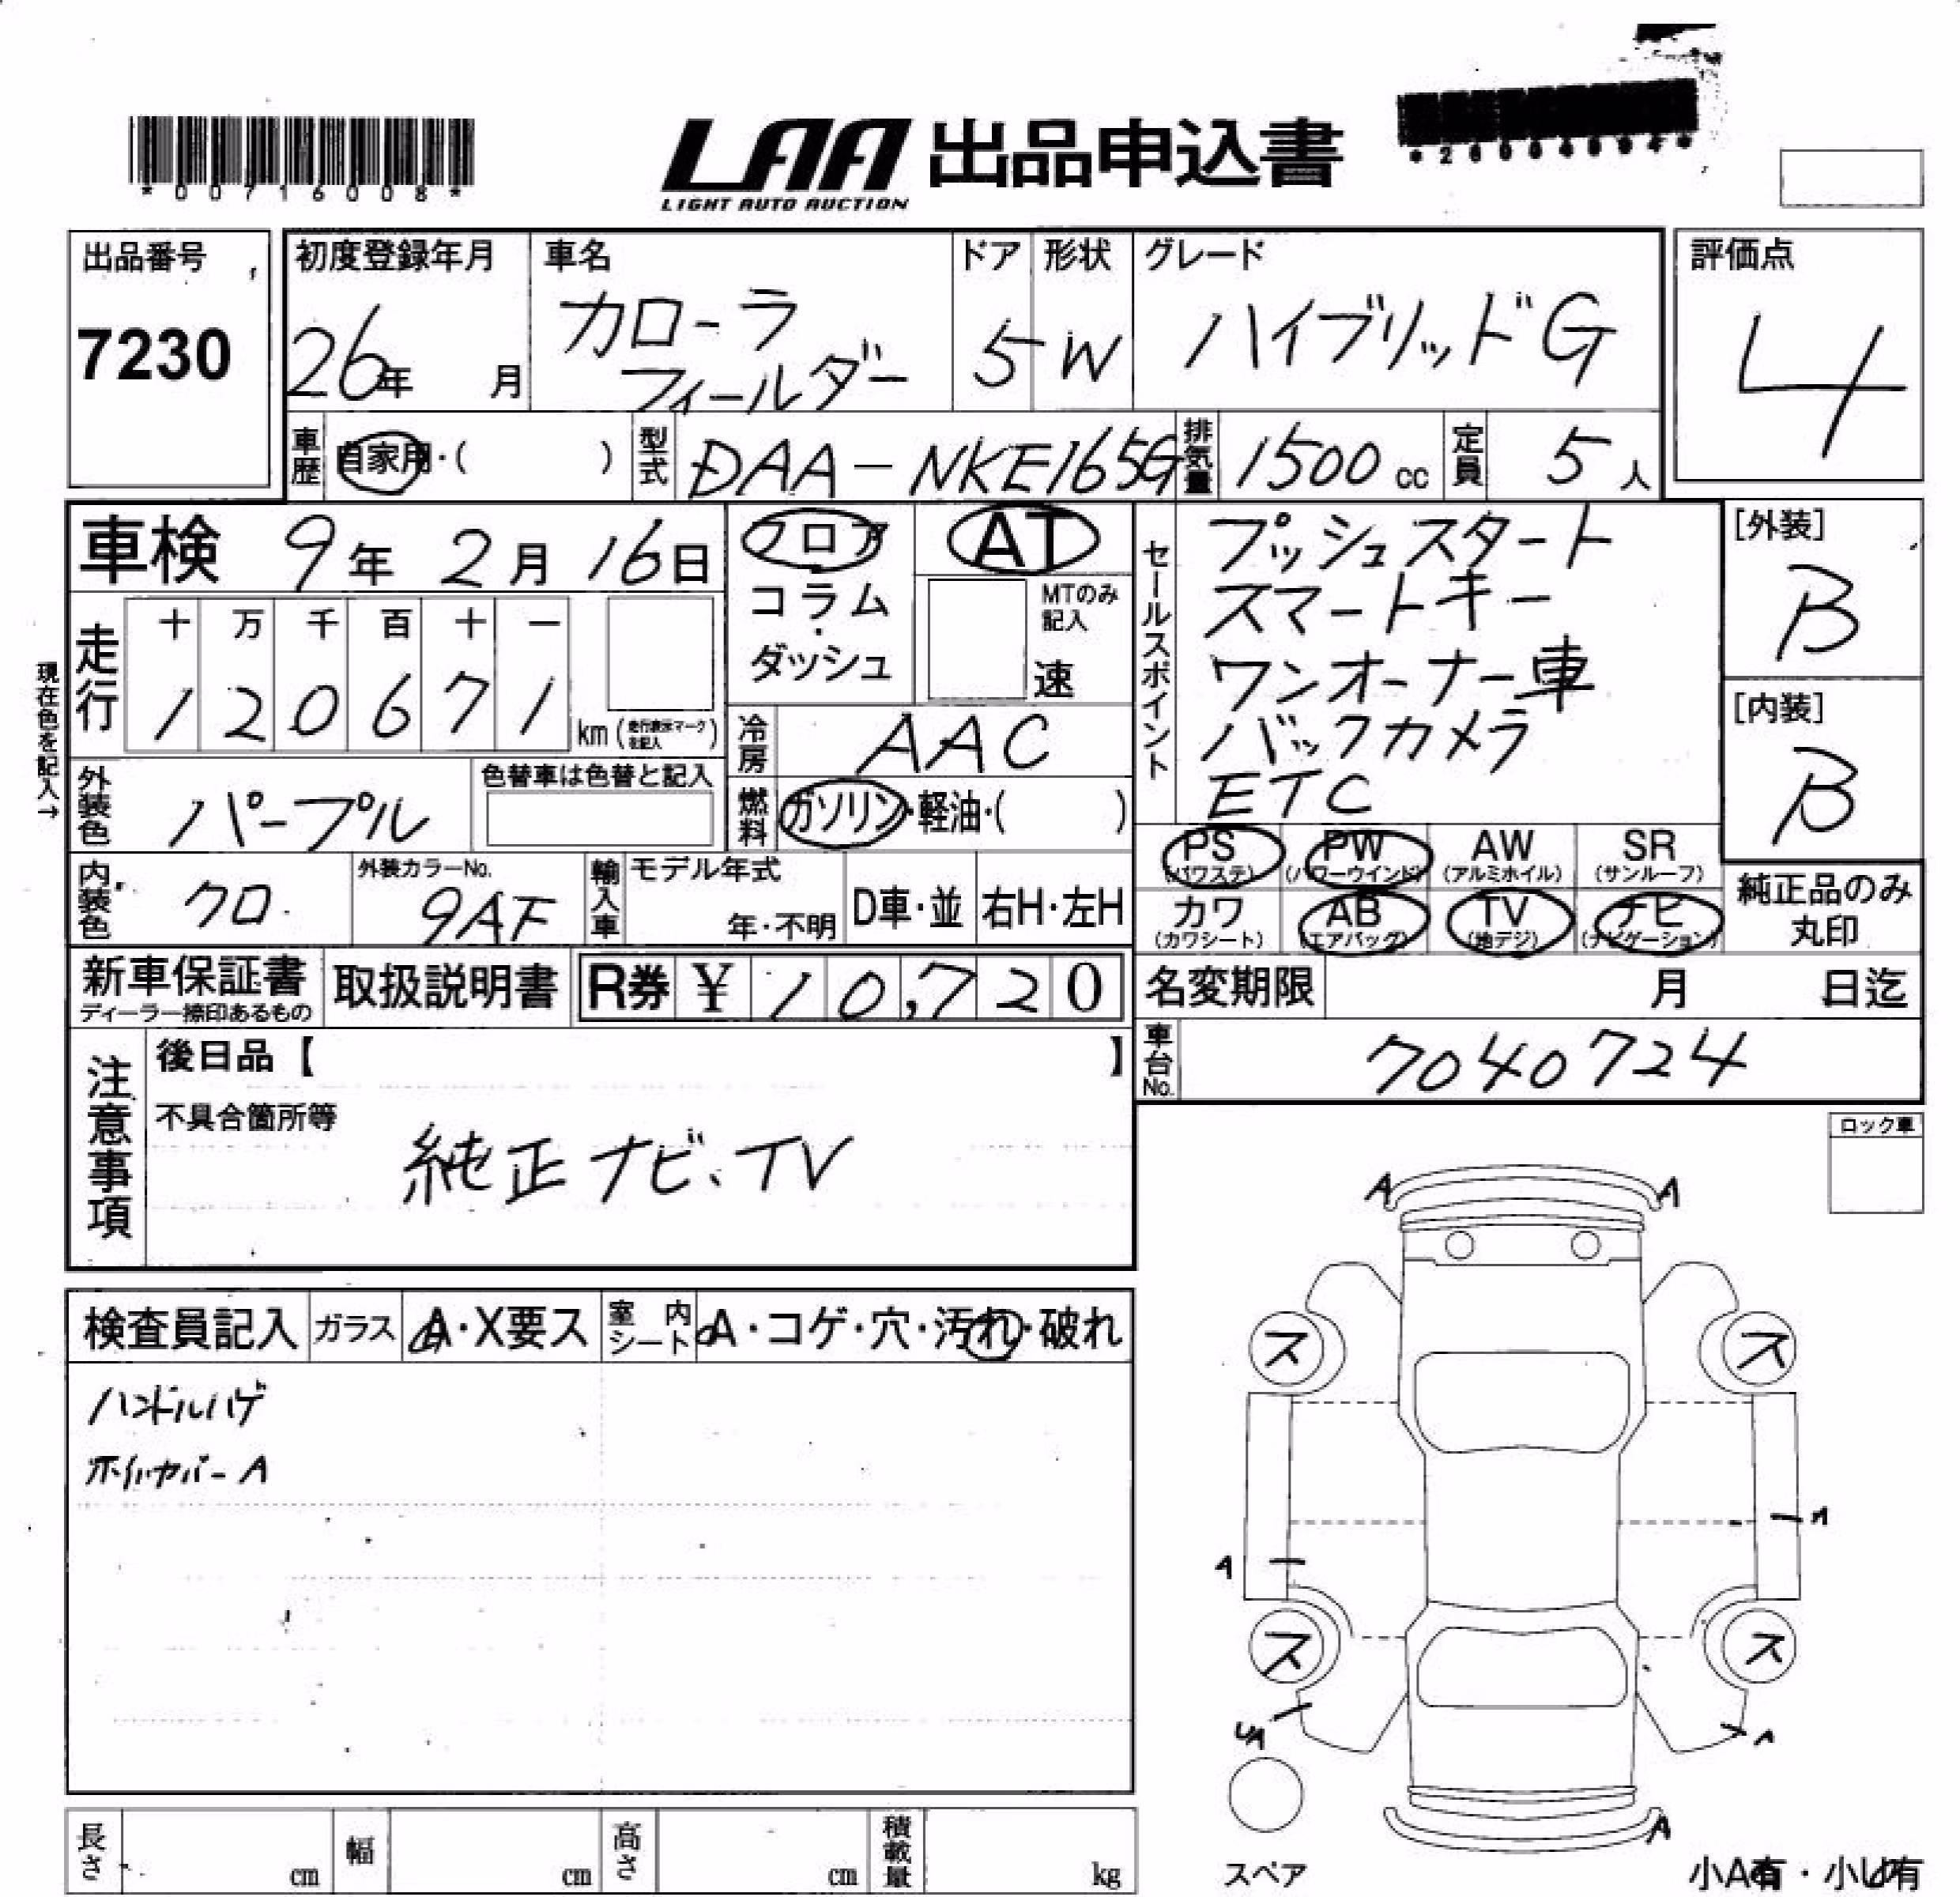 *00716008*
LAA 出品申込書
LIGHT AUTO AUCTION
出品番号
7230
初度登録年月
26年 月
車名
カローラ
フィールダー
ドア
5
形状
W
グレード
ハイブリッドG
評価点
4
車歴 自家用・( )
型式 DAA-NKE165G
排気量 1500 cc
定員 5 人
車検 9年 2月 16日
フロア
コラム
・
ダッシュ
AT
MTのみ記入
速
セールスポイント
プッシュスタート
スマートキー
ワンオーナー車
バックカメラ
ETC
[外装]
B
[内装]
B
現在色を記入→
走行
十 万 千 百 十 一
1 2 0 6 7 1 km (走行表示マークを記入)
冷房 AAC
外装色 パープル
色替車は色替と記入
燃料 ガソリン・軽油・( )
PS (パワステ)
PW (パワーウインド)
AW (アルミホイル)
SR (サンルーフ)
カワ (カワシート)
AB (エアバッグ)
TV (地デジ)
ナビ (ナビゲーション)
純正品のみ
丸印
内装色 クロ
外装カラーNo.
9AF
輸入車
モデル年式
年・不明
D車・並
右H・左H
新車保証書
ディーラー捺印あるもの
取扱説明書
R券 ¥ 10,720
名変期限 月 日迄
車台No. 7040724
注意事項
後日品【 】
不具合箇所等
純正ナビ、TV
ロック車
検査員記入
ガラス A・X要ス
室内シート A・コゲ・穴・汚れ・破れ
ハンドルハゲ
ホイルカバーA
A A
ス ス
A
A
ス ス
UA A
A
スペア
小A有・小U有
長さ cm
幅 cm
高さ cm
積載量 kg